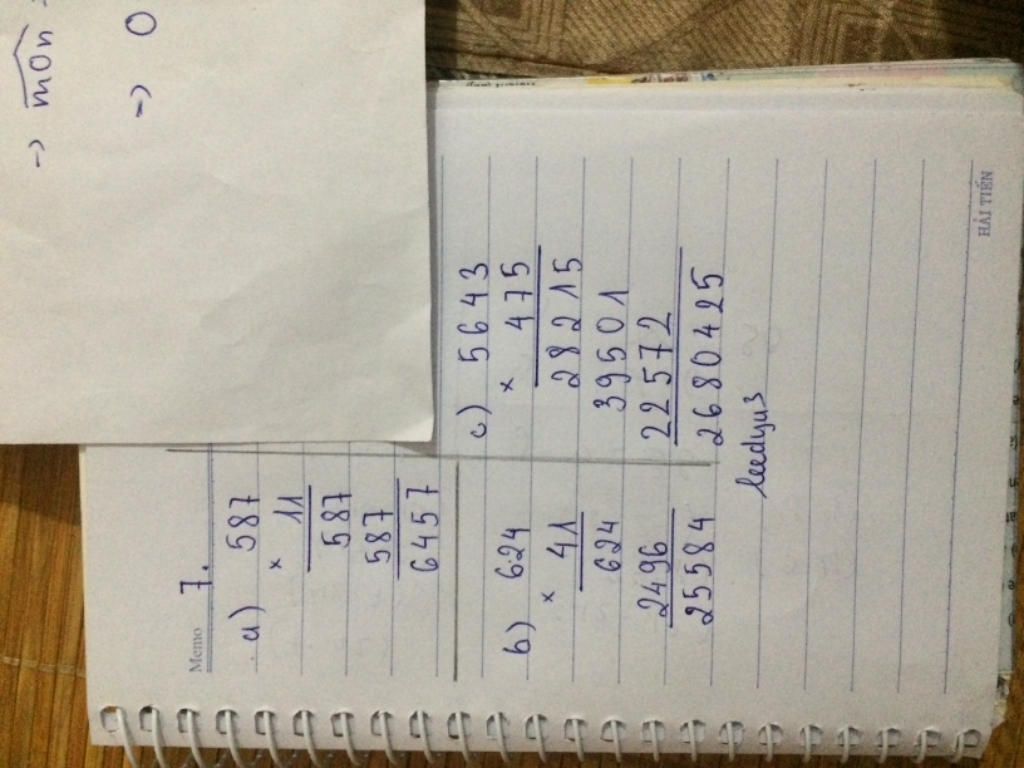 -) m0n
-) 0
Memo
7.
a) 587
× 11
587
587
6457
b) 624
× 41
624
2496
25584
c) 5643
× 475
28215
39501
22572
2680425
leedyu3
HẢI TIẾN